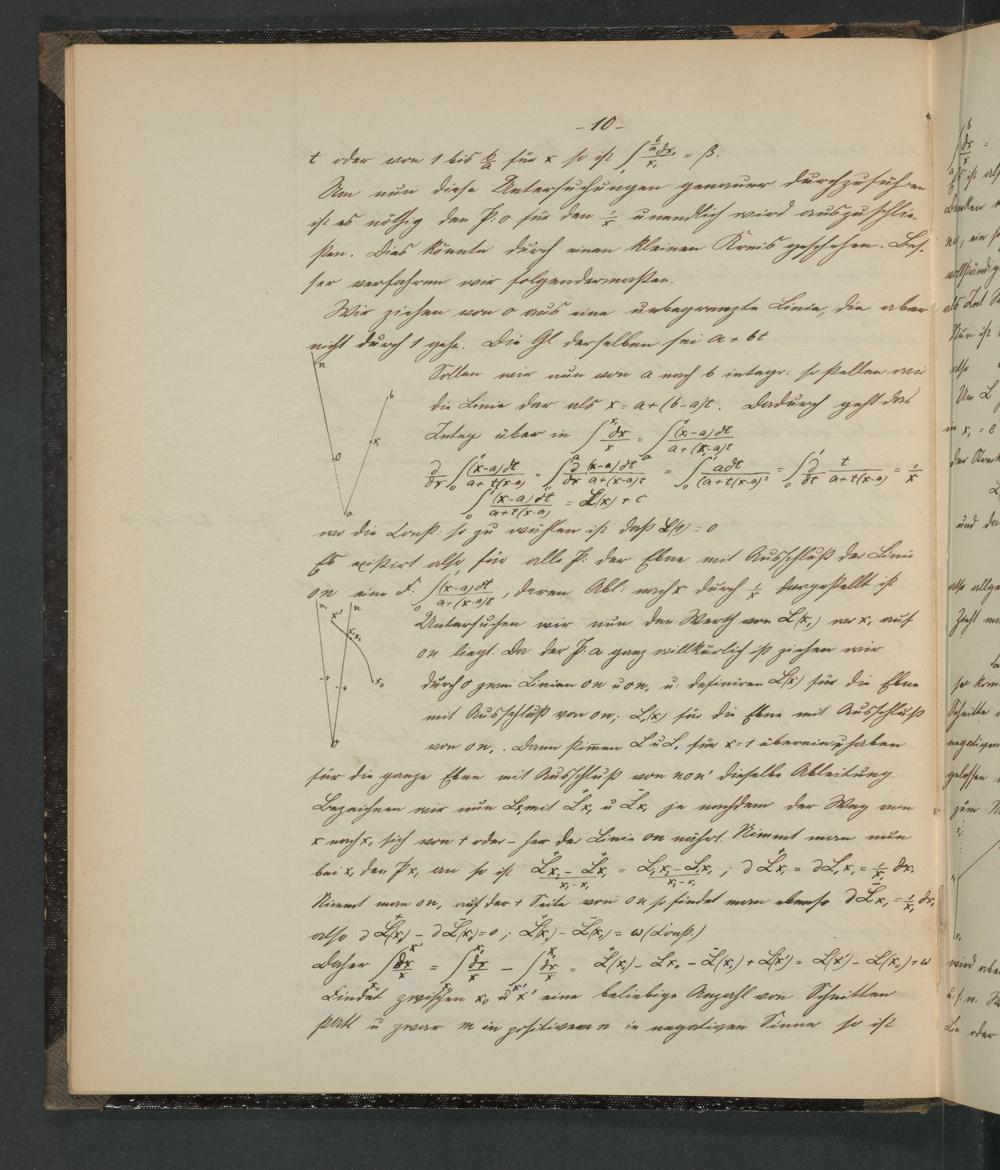 - 10 -
t oder von 1 bis b/a für x so ist ∫ b/a dx₁/x₁ = β.
Um nun diese Untersuchungen genauer durchzuführen
ist es nöthig den P. o für den 1/x unendlich wird auszuschlie-
ßen. Dies könnte durch einen kleinen Kreis geschehen. Bes-
ser verfahren wir folgendermaßen.
Wir ziehen von o aus eine unbegrenzte Linie, die aber
nicht durch 1 gehe. Die Gl. derselben sei a + bt
Sollen wir nun von a nach b integr: so stellen wir
die Linie dar als x = a + (b-a)t. Dadurch geht das
Integ über in ∫ dx/x = ∫ (x-a)dt/a+(x-a)t
∂/∂x ∫ (x-a)dt/a+t(x-a) = ∫ ∂/∂x (x-a)dt/a+(x-a)t = ∫ adt/(a+t(x-a))² = ∫ ∂/∂t t/a+t(x-a) = 1/x
∫ (x-a)dt/a+t(x-a) = L(x) + C
wo die Const: so zu wählen ist daß L(1) = 0
Es existirt also, für alle P. der Ebne mit Ausschluß der Linie
on eine F. ∫ (x-a)dt/a+(x-a)t, deren Abl: nach x durch 1/x dargestellt ist
Untersuchen wir nun den Werth von L(x₁) wo x₁ auf
on liegt. Da der P. a ganz willkürlich ist ziehen wir
durch o zwei Linien on u on₁ u: definiren L(x) für die Ebne
mit Ausschluß von on; L₁(x) für die Ebne mit Ausschluß
von on₁. Dann stimmen L u L₁ für x=1 überein u haben
für die ganze Ebne mit Ausschluß von non' dieselbe Ableitung
Bezeichnen wir nun Lx₁ mit L⁺x₁ u L⁻x₁ je nachdem der Weg von
x nach x₁ sich von + oder - her der Linie on nährt. Nimmt man nun
bei x₁ den P x₂ an so ist
Nimmt man on₁ auf der + Seite von on so findet man ebenso ∂L⁻x₁ = 1/x₁ dx₁
also ∂L⁺(x₁) - ∂L⁻(x₁) = 0; L⁺(x₁) - L⁻(x₁) = ω (Const.)
Daher ∫ dx/x = ∫ dx/x - ∫ dx/x = L⁺(x₁) - Lx₀ - L⁻(x₁) + L(x') = L(x') - L(x₀) + ω
Findet zwischen x₀ u x' eine beliebige Anzahl von Schnitten
statt u zwar m in positivem n in negativen Sinne so ist